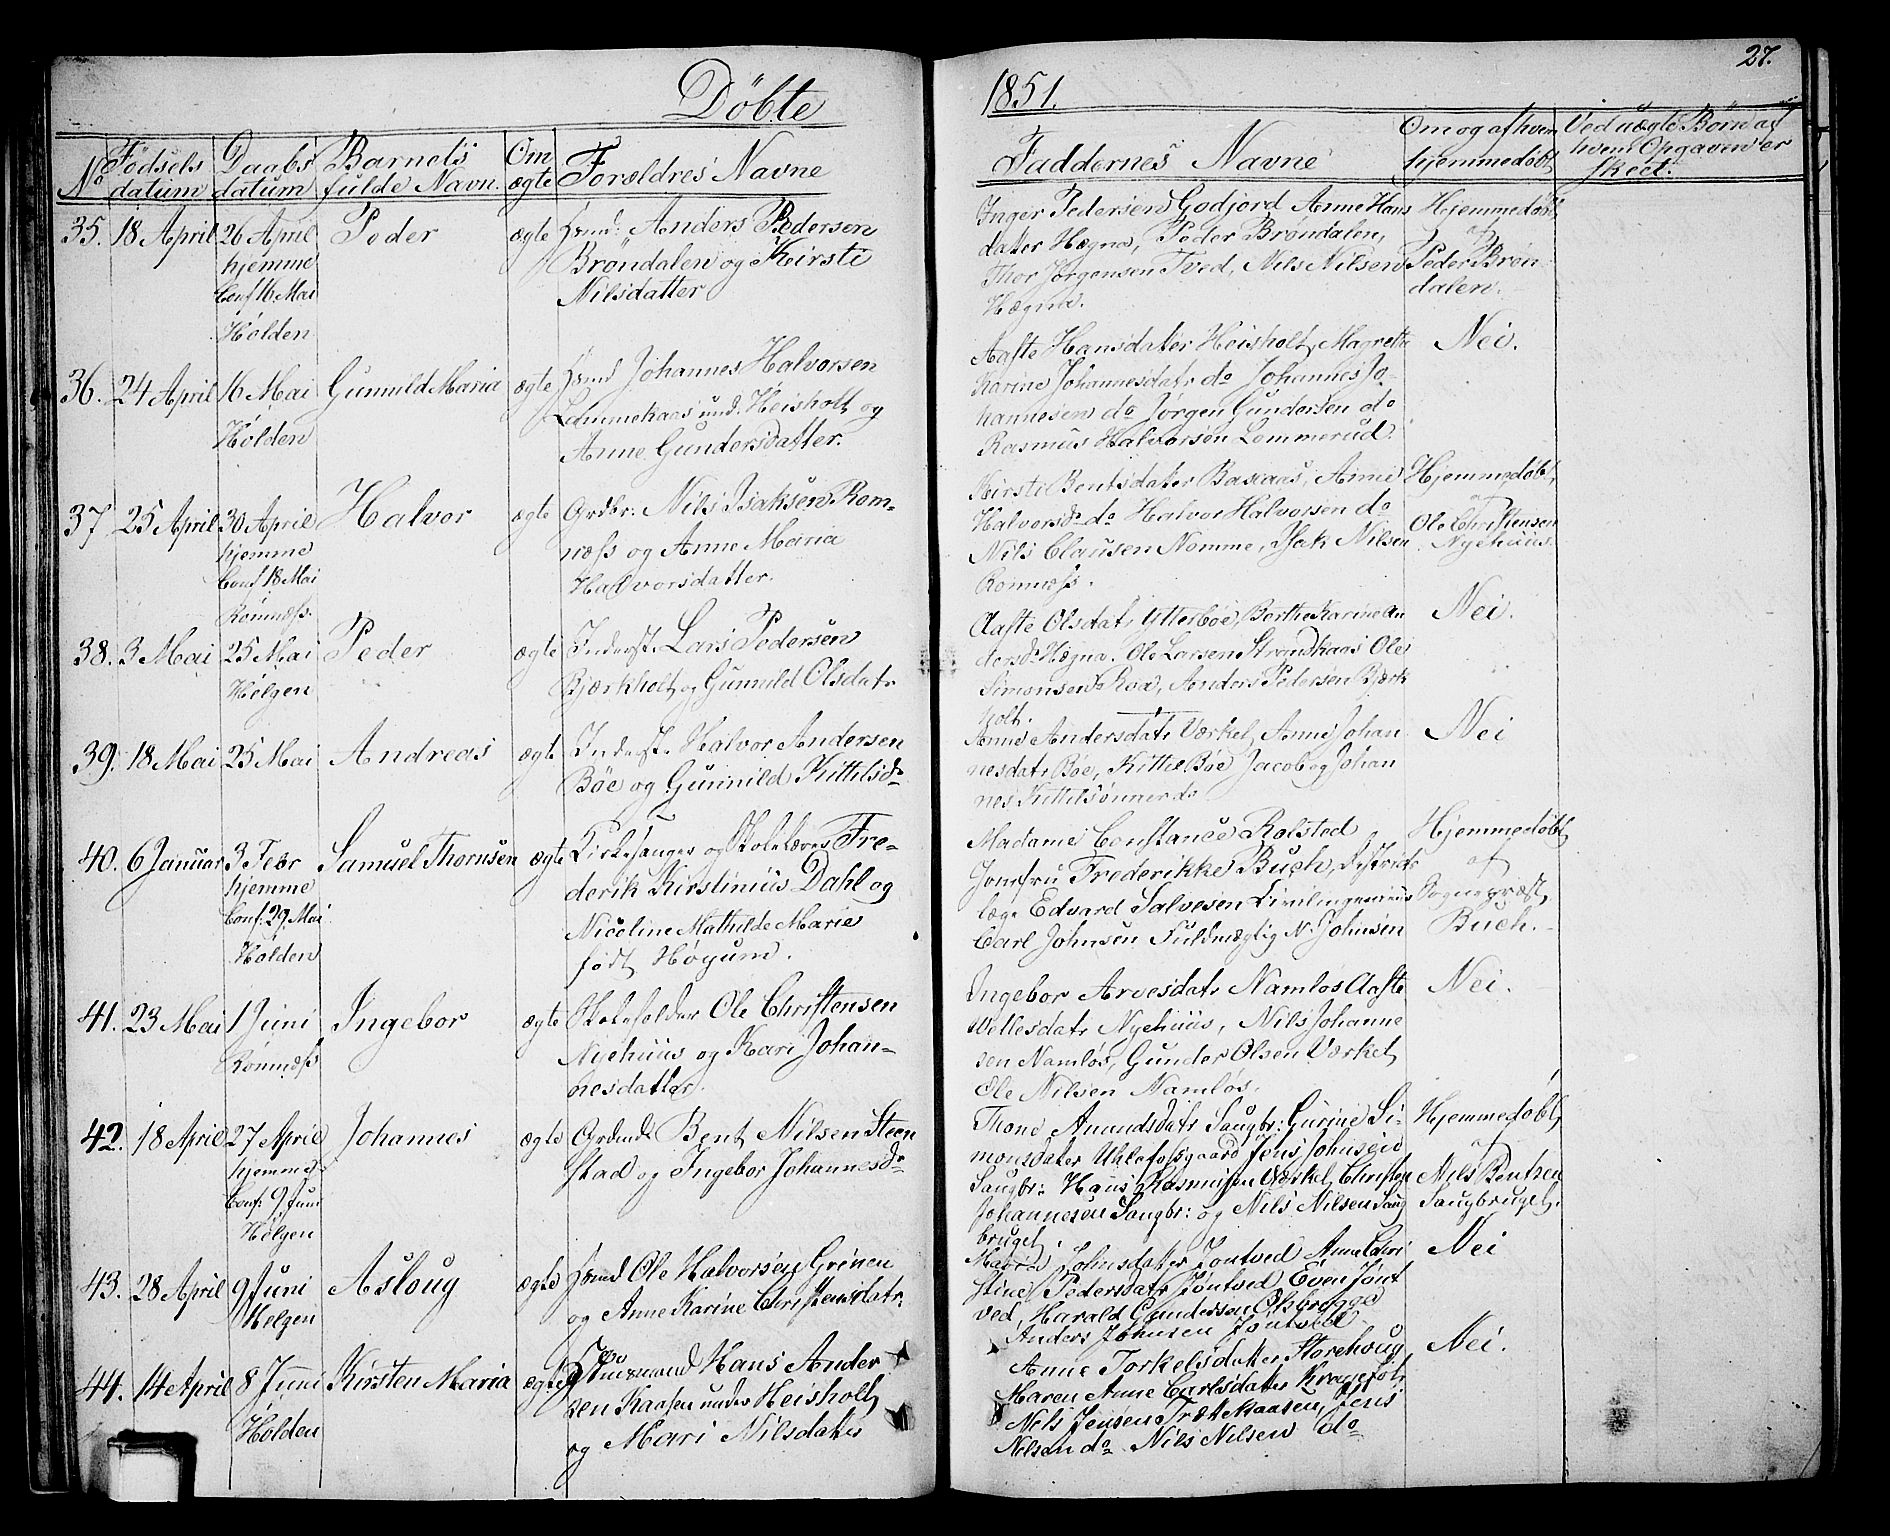 Döbte
1851.
27.
No
Fødsels
datum
Daabs
datum
Barnets
fulde Navn.
Om
ægte
Forældres Navne
Faddernes Navne
Om og af hvem
hjemmedøbt
Ved uægte Børn af
hvem Opgaven er
skeet.
35. 18 April 26 April Peder ægte Huusmd: Anders Pedersen
hjemme Brøndalen og Kirsti
Conf 16 Mai Nilsdatter
Holden
Inger Pedersen Godjord Anne Hans
datter Hægna, Peder Brøndalen,
Thor Jørgensen Tved, Nils Nilsen
Hægna.
Hjemmedøbt
af
Peder Brøn
dalen.
36. 24 April 16 Mai Gunnild Maria ægte Huusmd Johannes Halvorsen
Holden Lammekaas und. Heisholt og
Anne Gundersdatter.
Aaste Hansdatter Heisholt, Magrethe
Karine Johannesdatr do Johannes Jo-
hannesen do Jørgen Gundersen do
Rasmus Halvorsen Lommerud.
Nei.
37 25 April 30 April Halvor ægte Grdbr: Nils Isaksen Rom-
hjemme næss og Anne Maria
Conf. 18 Mai Halvorsdatter.
Romnæss.
Kirsti Bentsdatter Baskaas, Anne
Halvorsdr do Halvor Halvorsen do
Nils Clausen Nomme, Isak Nilsen
Romnæss.
Hjemmedøbt,
af
Ole Christensen
Nyehuus.
38. 3 Mai 25 Mai Peder ægte Inderst. Lars Pedersen
Helgen Bjærkholt og Gunnild Olsdatr
Aaste Olsdatr Ytterbøe, Berthe Karine An
dersdr Hægna. Ole Larsen Strandkaas Ole
Simonsen Roa, Anders Pedersen Bjærk
holt.
Nei.
39. 18 Mai 25 Mai Andreas ægte Inderst. Halvor Andersen
Bøe og Gunnild Kittilsdr
Anne Andersdatr Værket, Anne Johan
nesdatr Bøe, Kittil Bøe Jacob og Johan
nes Kittilsønner do
Nei
40. 6 Januar 3 Febr Samuel Thornsen ægte Kirkesanger og Skolelærer Fre-
hjemme derik Kirstinius Dahl og
Conf. 29. Mai Nicoline Mathilde Marie
Holden født Høyum.
Madame Constance Rolsted
Jomfru Frederikke Buch, Distrikts
læge Edvard Salvesen Civilingeniør
Carl Johnsen Fuldmægtig N. Johnsen
Hjemmedøbt
af
Sognepræst,
Buch.
41. 23 Mai 1 Juni Ingebor ægte Skoleholder Ole Christensen
Romnæss Nyehuus og Kari Johan-
nesdatter.
Ingebor Arvesdatr Namløs Aaste
Wellesdatr Nyehuus, Nils Johanne
sen Namløs, Gunder Olsen Værket,
Ole Nilsen Namløs.
Nei.
42. 18 April 27 April Johannes ægte Grdmd Bent Nilsen Steen
hjemme stad og Ingebor Johannesdr
Conf: 9 Juni
Helgen
Thone Amundsdatr Saugbr: Gurine Si-
monsdatter Uhlefossgaard Jens Johnsen
Saugbr: Hans Rasmusen Værket, Christen
Johannesen Saugbr: og Nils Nilsen Saug
bruget.
Hjemmedøbt,
af
Nils Bentsen
Saugbruget.
43. 28 April 9 Juni Asloug ægte Huusmd Ole Halvorsen Grinen
Helgen og Anne Karine Christensdatr:
Maria Johnsdatter Jontved Anne Chri
stine Pedersdatr Jontved Even Jont
ved, Harald Gundersen Øxbrygge
Anders Johnsen Jontved.
Nei
44. 14 April 8 Juni Kirsten Maria ægte Huusmand Hans Ander
Holden sen Kaasen under Heisholt,
og Mari Nilsdatter
Anne Torkelsdatter Storehoug,
Maren Anne Carlsdatter
Nils Jensen Trættekaasen, Jens
Nilsen do Nils Nilsen do
Nei.